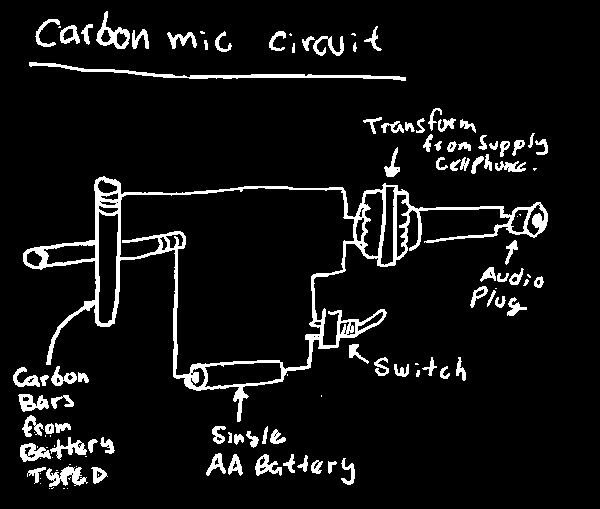 Carbon mic circuit
Transform
from supply
cellphone.
Audio
Plug
Switch
Single
AA Battery
Carbon
Bars
from
Battery
TYPE D